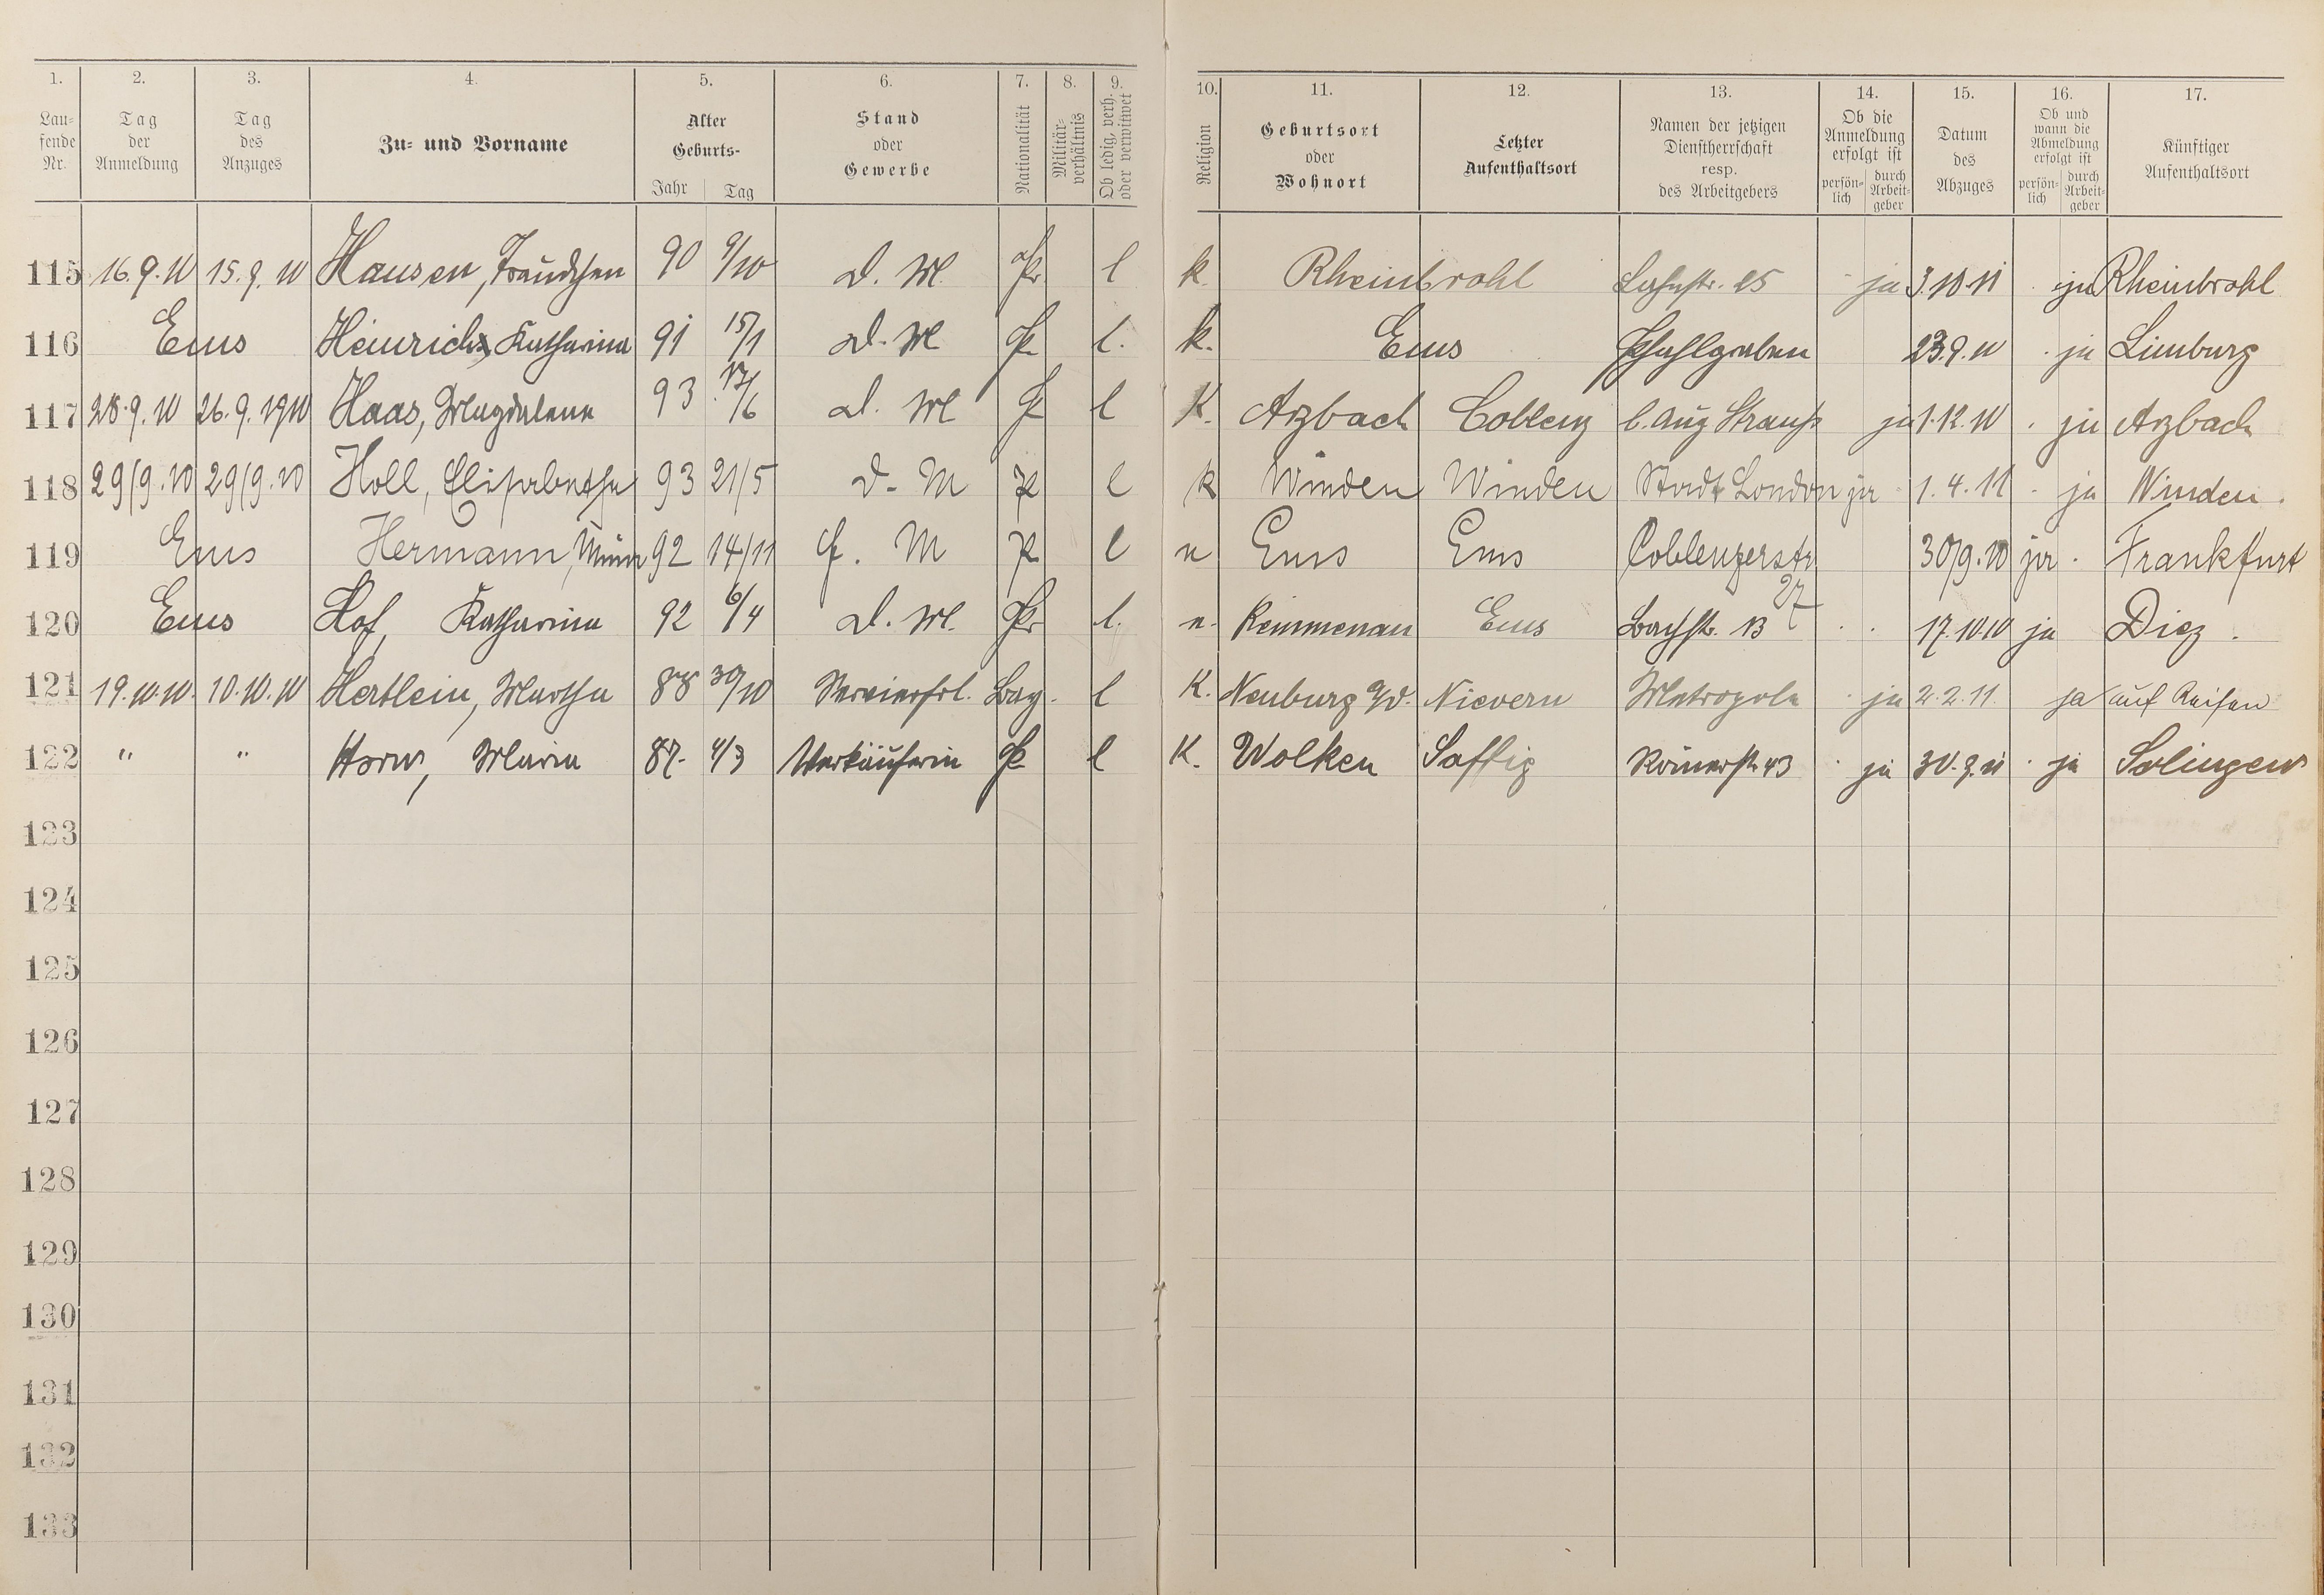 1. 2. 3. 4. 5. 6. 7. 8. 9. 10. 11. 12. 13. 14. 15. 16. 17.
Lau-
fende
Nr.
Tag
der
Anmeldung
Tag
des
Anzuges
Zu- und Vorname
Alter
Geburts-
Jahr Tag
Stand
oder
Gewerbe
Nationalität
Militär-
verhältnis
Ob ledig, verh.
oder verwitwet
Religion
Geburtsort
oder
Wohnort
Letzter
Aufenthaltsort
Namen der jetzigen
Dienstherrschaft
resp.
des Arbeitgebers
Ob die
Anmeldung
erfolgt ist
persön-
lich
durch
Arbeit-
geber
Datum
des
Abzuges
Ob und
wann die
Abmeldung
erfolgt ist
persön-
lich
durch
Arbeit-
geber
Künftiger
Aufenthaltsort
115 16.9.10 15.9.10 Hausen, Traudchen 90 9/10 D. M. Pr. l k. Rheinbrohl Lahnstr. 25 ja 3.10.11 ja Rheinbrohl
116 Ems Heinrichs Katharina 91 15/1 D. M Pr. l. k. Ems Pfahlgraben 23.9.10 ja Limburg
117 28.9.10 26.9.1910 Haas, Magdalena 93 /6 D. M Pr l K. Arzbach Coblenz b. Aug Strauß ja 1.12.10 ja Arzbach
118 29/9.10 29/9.10 Holl, Elisabetha 93 21/5 D. M Pr l k Winden Winden Stadt London ja 1.4.11 ja Winden.
119 Ems Hermann, Minna 92 14/11 M Pr l n Ems Ems Coblenzerstr. 27 30/9.10 ja Frankfurt
120 Ems Hof, Katharina 92 6/4 D. M. Pr. l. n. Kemmenau Ems Bachstr. 13 17.10.10 ja Diez.
121 19.10.10. 10.10.10 Hertlein, Martha 88 30/10 Servierfrl. Bay. l K. Neuburg a/d. Nievern Metropole ja 2.2.11. ja auf Reisen
122 " " Horn, Maria 87. 4/3 Verkäuferin Pr l K. Wolken Saffig Römerstr. 43 ja 30.9.11 ja Solingen
123
124
125
126
127
128
129
130
131
132
133